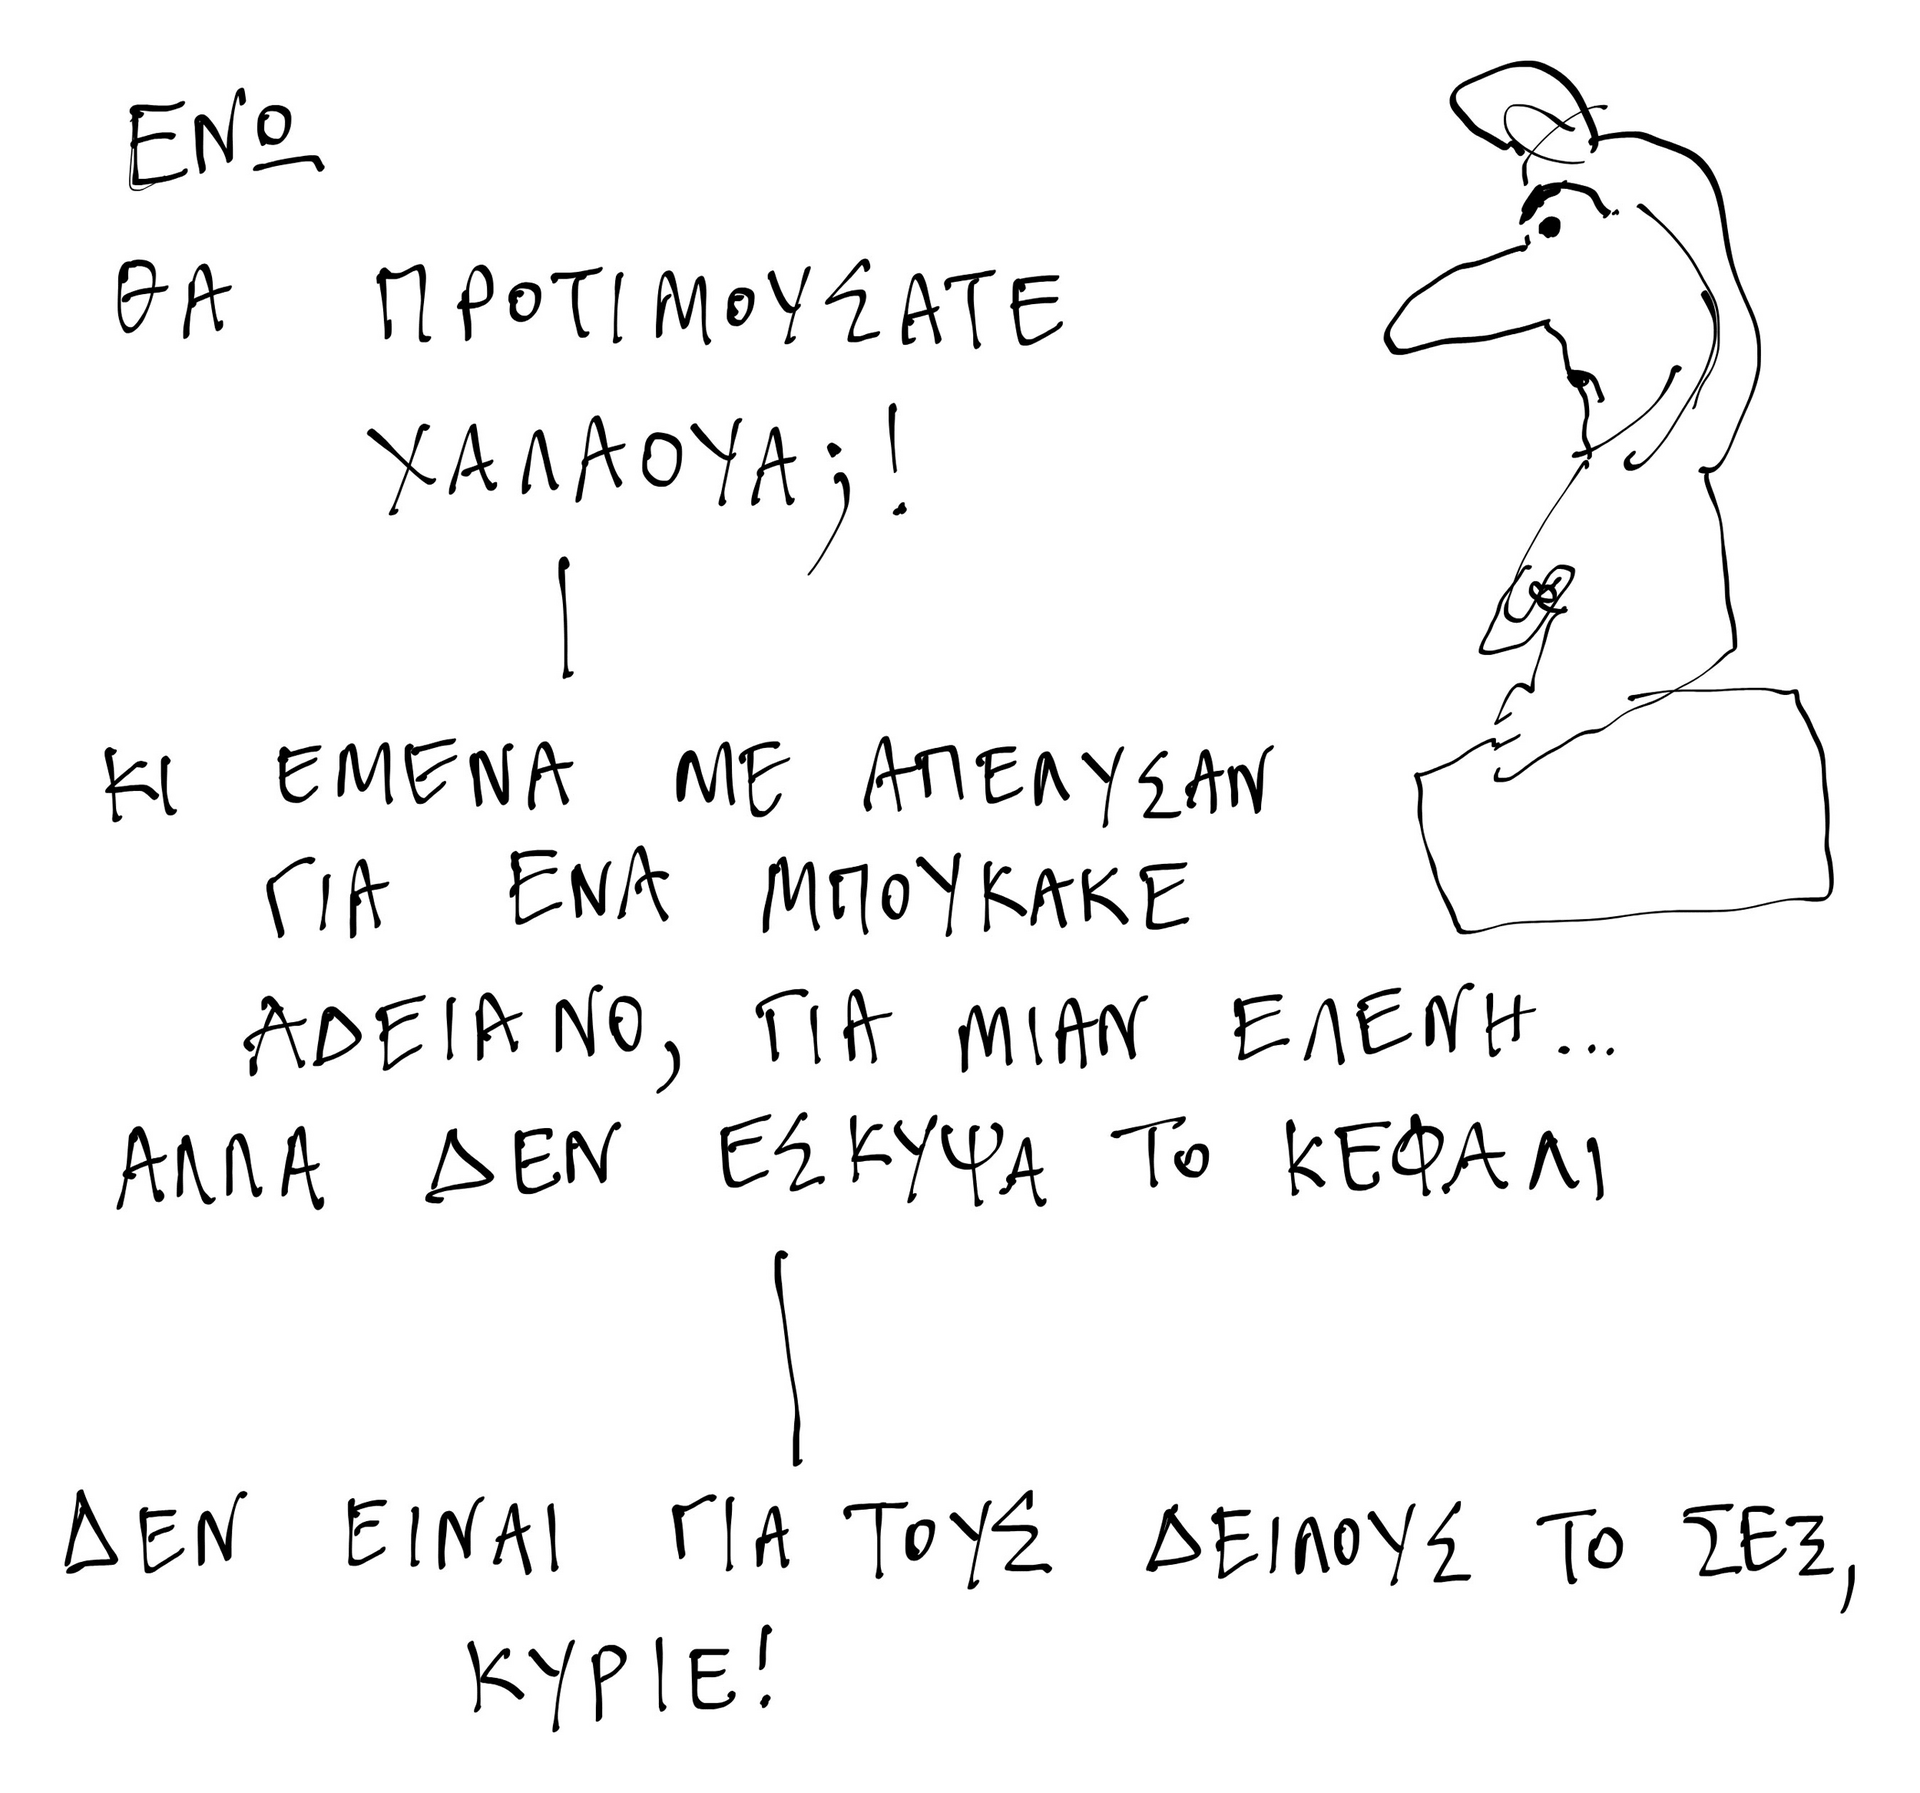 ΕΝΩ
ΘΑ ΠΡΟΤΙΜΟΥΣΑΤΕ
ΧΑΛΑΟΥΑ;!
ΚΙ ΕΜΕΝΑ ΜΕ ΑΠΕΛΥΣΑΝ
ΓΙΑ ΕΝΑ ΜΠΟΥΚΑΚΕ
ΑΔΕΙΑΝΟ, ΓΙΑ ΜΙΑΝ ΕΛΕΝΗ...
ΑΛΛΑ ΔΕΝ ΕΣΚΥΨΑ ΤΟ ΚΕΦΑΛΙ
ΔΕΝ ΕΙΝΑΙ ΓΙΑ ΤΟΥΣ ΔΕΙΛΟΥΣ ΤΟ ΣΕΞ,
ΚΥΡΙΕ!